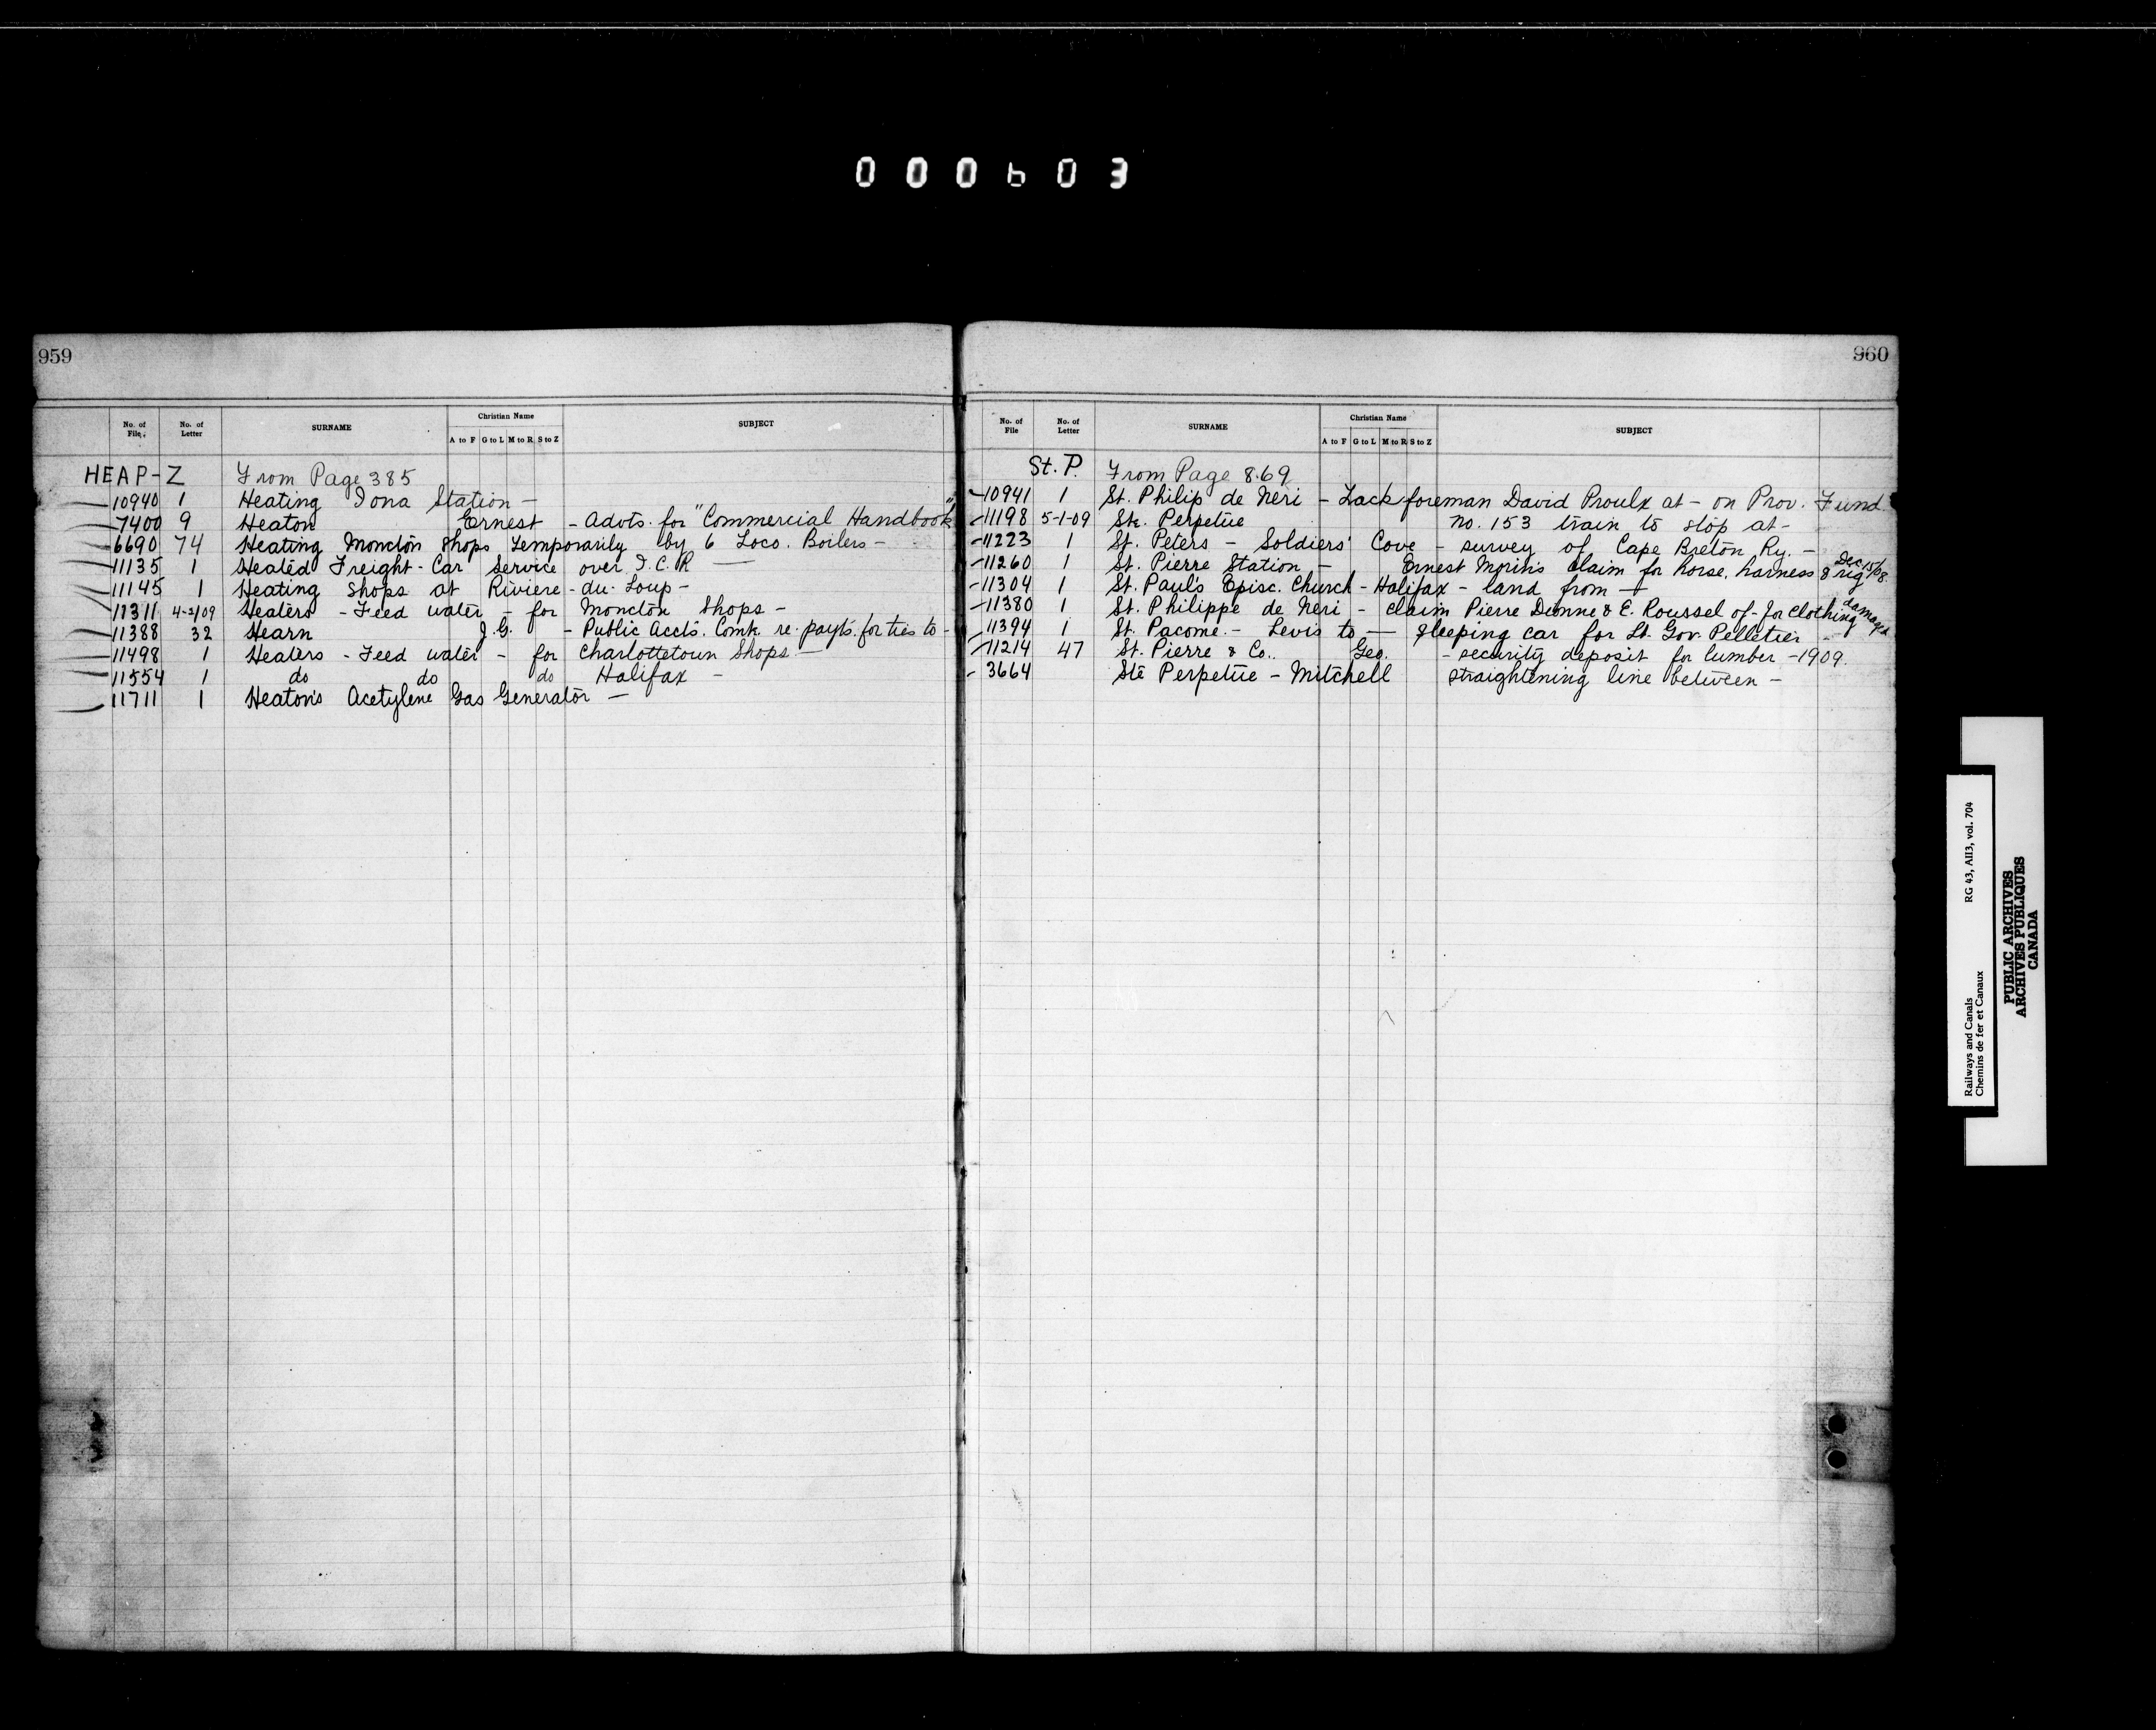 000603
959
No. of File. No. of Letter SURNAME Christian Name A to F G to L M to R S to Z SUBJECT
HEAP-Z From Page 385
10940 1 Heating Iona Station -
7400 9 Heaton Ernest - Advts. for "Commercial Handbook"
6690 74 Heating Moncton Shops temporarily by 6 Loco. Boilers -
11135 1 Heated Freight-Car Service over I.C.R -
11145 1 Heating Shops at Riviere-du-Loup -
11311 4-2/09 Heaters - Feed water - for Moncton Shops -
11388 32 Hearn J.G. - Public Accts. Comk. re. payts. for ties to -
11498 1 Heaters - Feed water - for Charlottetown Shops -
11554 1 do do do Halifax -
11711 1 Heaton's Acetylene Gas Generator -
960
No. of File No. of Letter SURNAME Christian Name A to F G to L M to R S to Z SUBJECT
St. P. From Page 869
10941 1 St. Philip de Neri - Lack foreman David Proulx at - on Prov. Fund
11198 5-1-09 Ste. Perpetue no. 153 train to stop at -
11223 1 St. Peters - Soldiers' Cove - survey of Cape Breton Ry. -
11260 1 St. Pierre Station - Ernest Morin's claim for horse, harness & rig Dec 15/08
11304 1 St. Paul's Episc. Church - Halifax - land from -
11380 1 St. Philippe de Neri - claim Pierre Dionne & E. Roussel of - for clothing damaged
11394 1 St. Pacome - Levis to - sleeping car for Lt. Gov. Pelletier -
11214 47 St. Pierre & Co. Geo. - security deposit for lumber - 1909.
3664 Ste Perpetue - Mitchell straightening line between -
Railways and Canals RG 43, AII3, vol. 704
Chemins de fer et Canaux
PUBLIC ARCHIVES
ARCHIVES PUBLIQUES
CANADA